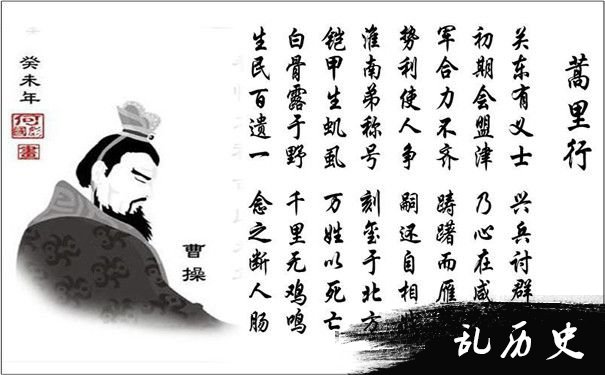 蒿里行
关东有义士 兴兵讨群
初期会盟津 乃心在咸
军合力不齐 踌躇而雁
势利使人争 嗣还自相
淮南弟称号 刻玺于北方
铠甲生虮虱 万姓以死亡
白骨露于野 千里无鸡鸣
生民百遗一 念之断人肠
曹操
癸未年
畫
乱历史